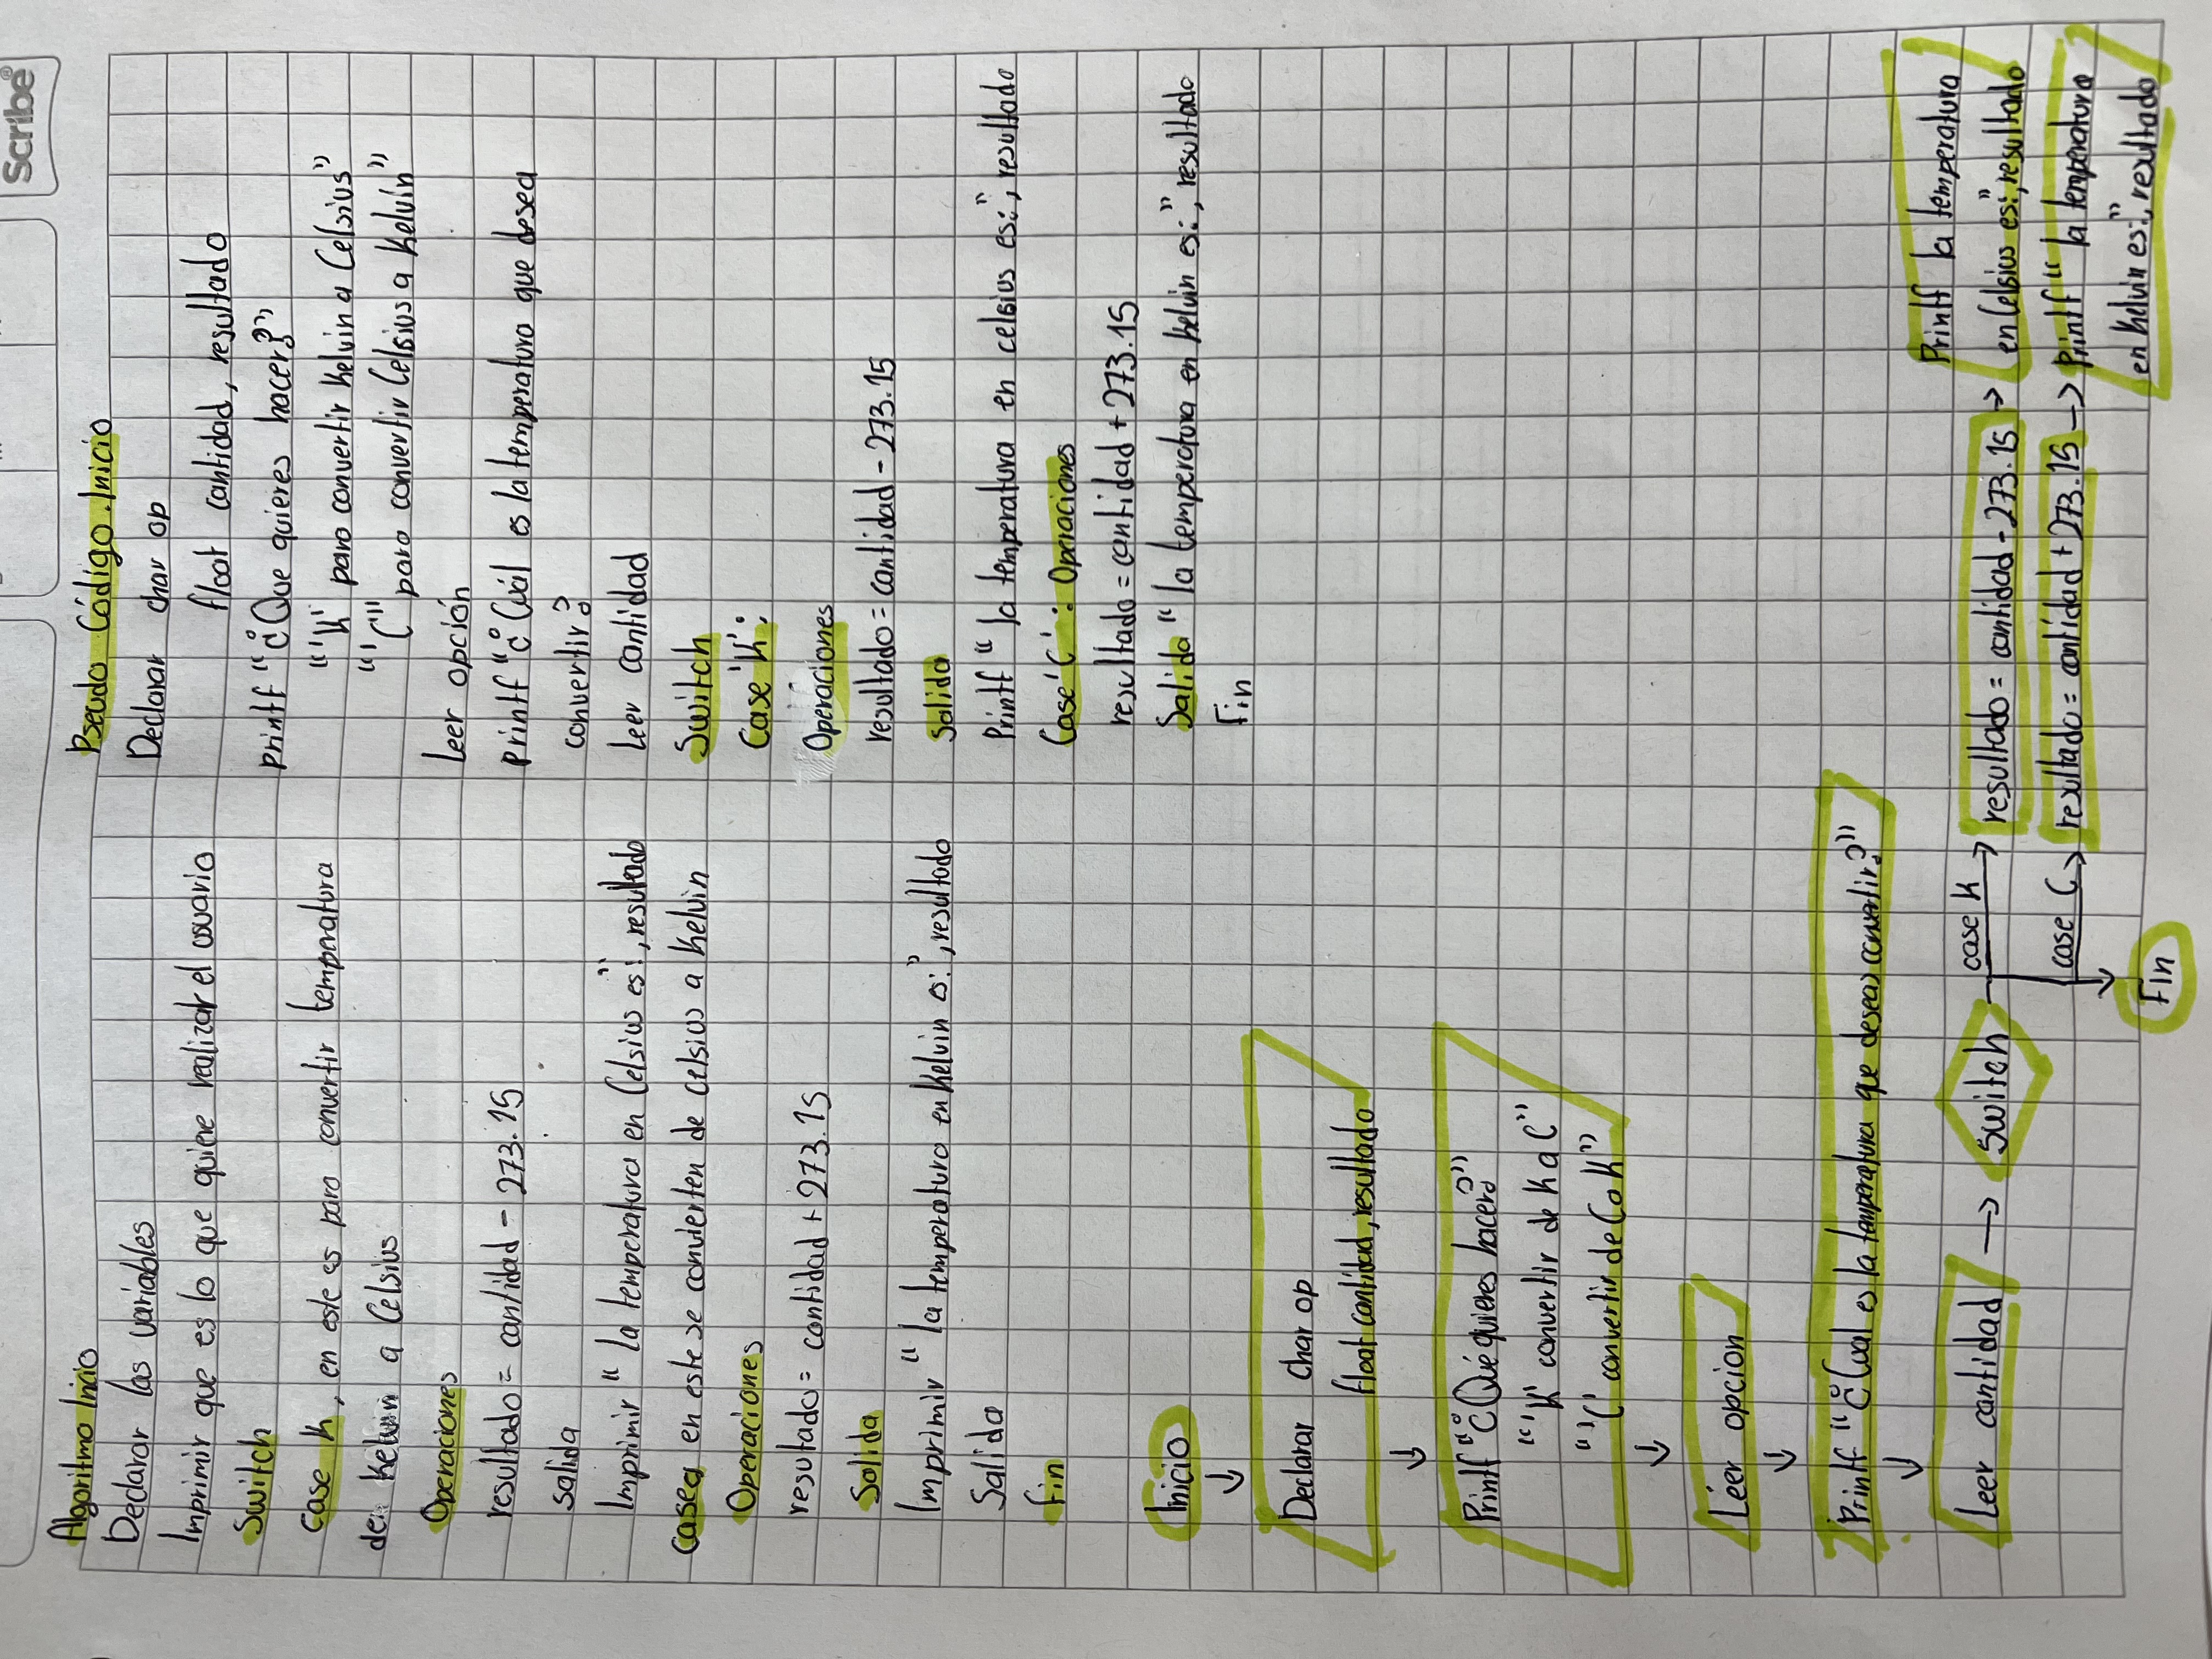 Scribe®
Algoritmo Inicio
Declarar las variables
Imprimir que es lo que quiere realizar el usuario
Switch
case K, en este es para convertir temperatura
de Kelvin a Celsius
Operaciones
resultado = cantidad - 273.15
salida
Imprimir "la temperatura en Celsius es:", resultado
case en este se convierten de celsius a Kelvin
Operaciones
resutado = cantidad + 273.15
Salida
Imprimir "la temperatura en Kelvin es:", resultado
Salida
fin
Pseudo Código. Inicio
Declarar char op
float cantidad, resultado
printf "¿Que quieres hacer?"
"'K' para convertir Kelvin a Celsius"
"'C' para convertir Celsius a Kelvin"
Leer opción
printf "¿Cuál es la temperatura que desea
convertir?
Leer cantidad
Switch
Case 'K':
Operaciones
resultado = cantidad - 273.15
Salida
Printf "la temperatura en celsius es:", resultado
Case 'C': Operaciones
resultado = cantidad + 273.15
Salida "la temperatura en kelvin es:", resultado
Fin
Inicio
Declarar char op
float cantidad, resultado
Printf "¿Qué quieres hacer?"
"'K' convertir de K a C"
"'C' convertir de C a K"
Leer opcion
Printf "¿Cual es la temperatura que deseas convertir?"
Leer cantidad → switch
case K → resultado = cantidad - 273.15 →
Printf la temperatura
en Celsius es:", resultado
case C → resultado = cantidad + 273.15 →
Printf "la temperatura
en Kelvin es:", resultado
Fin